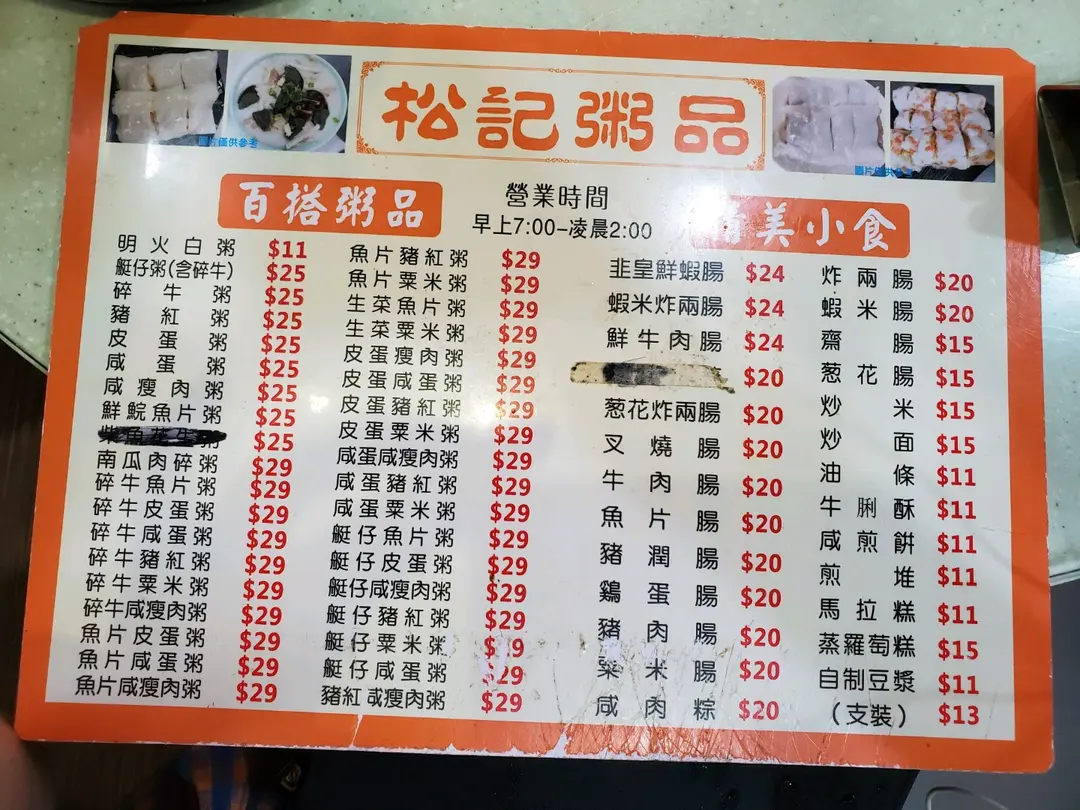 松記粥品
圖片僅供參考
圖片僅供參考
百搭粥品
營業時間
早上7:00-凌晨2:00
美小食
明火白粥 $11
艇仔粥(含碎牛) $25
碎牛粥 $25
豬紅粥 $25
皮蛋粥 $25
咸蛋粥 $25
咸瘦肉粥 $25
鮮鯇魚片粥 $25
$25
南瓜肉碎粥 $29
碎牛魚片粥 $29
碎牛皮蛋粥 $29
碎牛咸蛋粥 $29
碎牛豬紅粥 $29
碎牛粟米粥 $29
碎牛咸瘦肉粥 $29
魚片皮蛋粥 $29
魚片咸蛋粥 $29
魚片咸瘦肉粥 $29
魚片豬紅粥 $29
魚片粟米粥 $29
生菜魚片粥 $29
生菜粟米粥 $29
皮蛋瘦肉粥 $29
皮蛋咸蛋粥 $29
皮蛋豬紅粥 $29
皮蛋粟米粥 $29
咸蛋咸瘦肉粥 $29
咸蛋豬紅粥 $29
咸蛋粟米粥 $29
艇仔魚片粥 $29
艇仔皮蛋粥 $29
艇仔咸瘦肉粥 $29
艇仔豬紅粥 $29
艇仔粟米粥 $29
艇仔咸蛋粥 $29
豬紅咸瘦肉粥 $29
韭皇鮮蝦腸 $24
蝦米炸兩腸 $24
鮮牛肉腸 $24
$20
葱花炸兩腸 $20
叉燒腸 $20
牛肉腸 $20
魚片腸 $20
豬潤腸 $20
鷄蛋腸 $20
豬肉腸 $20
粟米腸 $20
咸肉粽 $20
炸兩腸 $20
蝦米腸 $20
齋腸 $15
葱花腸 $15
炒米 $15
炒面 $15
油條 $11
牛脷酥 $11
咸煎餅 $11
煎堆 $11
馬拉糕 $11
蒸羅蔔糕 $15
自制豆漿 $11
(支裝) $13